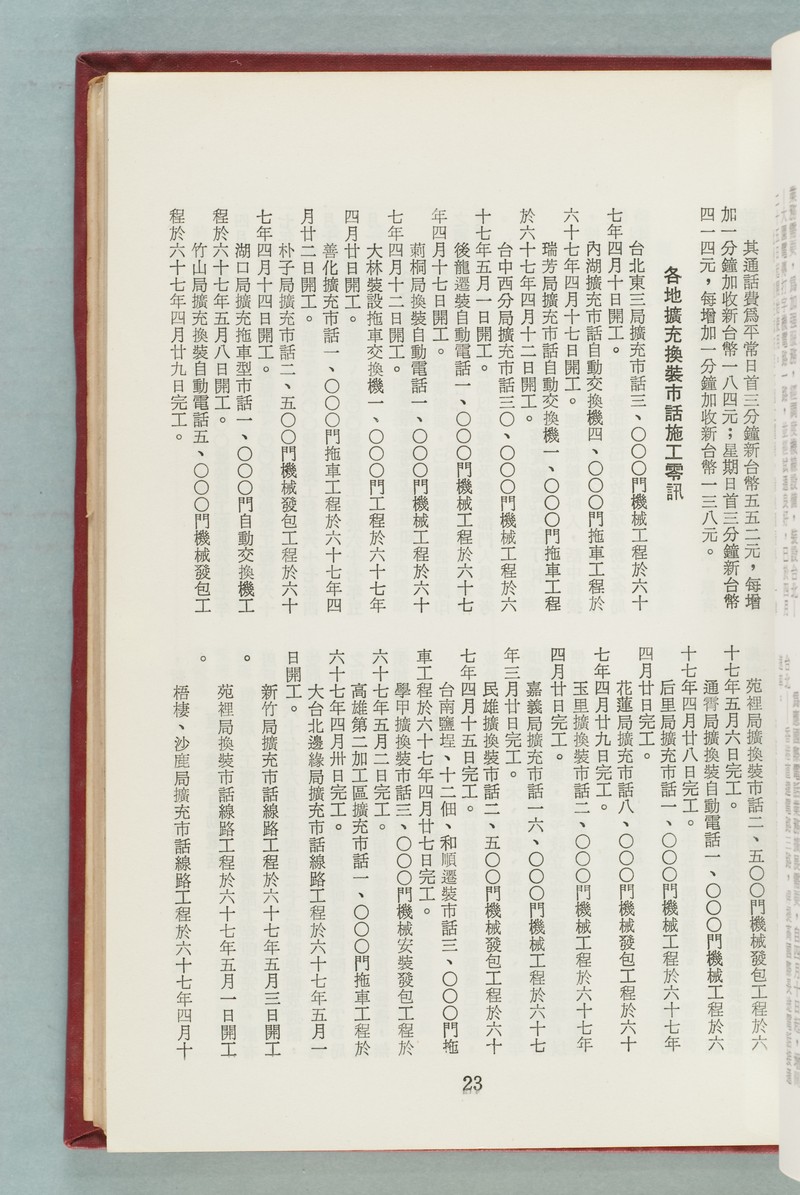 其通話費爲平常日首三分鐘新台幣五五二元，每增
加一分鐘加收新台幣一八四元；星期日首三分鐘新台幣
四一四元，每增加一分鐘加收新台幣一三八元。
各地擴充換裝市話施工零訊
台北東三局擴充市話三、〇〇〇門機械工程於六十
七年四月十日開工。
內湖擴充市話自動交換機四、〇〇〇門拖車工程於
六十七年四月十七日開工。
瑞芳局擴充市話自動交換機一、〇〇〇門拖車工程
於六十七年四月十二日開工。
台中西分局擴充市話三〇、〇〇〇門機械工程於六
十七年五月一日開工。
後龍遷裝自動電話一、〇〇〇門機械工程於六十七
年四月十七日開工。
莿桐局換裝自動電話一、〇〇〇門機械工程於六十
七年四月十二日開工。
大林裝設拖車交換機一、〇〇〇門工程於六十七年
四月廿日開工。
善化擴充市話一、〇〇〇門拖車工程於六十七年四
月廿二日開工。
朴子局擴充市話二、五〇〇門機械發包工程於六十
七年四月十四日開工。
湖口局擴充拖車型市話一、〇〇〇門自動交換機工
程於六十七年五月八日開工。
竹山局擴充換裝自動電話五、〇〇〇門機械發包工
程於六十七年四月廿九日完工。
苑裡局擴換裝市話二、五〇〇門機械發包工程於六
十七年五月六日完工。
通霄局擴換裝自動電話一、〇〇〇門機械工程於六
十七年四月廿八日完工。
后里局擴充市話一、〇〇〇門機械工程於六十七年
四月廿日完工。
花蓮局擴充市話八、〇〇〇門機械發包工程於六十
七年四月廿九日完工。
玉里擴換裝市話二、〇〇〇門機械工程於六十七年
四月廿日完工。
嘉義局擴充市話一六、〇〇〇門機械工程於六十七
年三月廿日完工。
民雄擴換裝市話二、五〇〇門機械發包工程於六十
七年四月十五日完工。
台南鹽埕、十二佃、和順遷裝市話三、〇〇〇門拖
車工程於六十七年四月廿七日完工。
學甲擴換裝市話三、〇〇〇門機械安裝發包工程於
六十七年五月二日完工。
高雄第二加工區擴充市話一、〇〇〇門拖車工程於
六十七年四月卅日完工。
大台北邊緣局擴充市話線路工程於六十七年五月一
日開工。
新竹局擴充市話線路工程於六十七年五月三日開工
。
苑裡局換裝市話線路工程於六十七年五月一日開工
。
梧棲、沙鹿局擴充市話線路工程於六十七年四月十
23